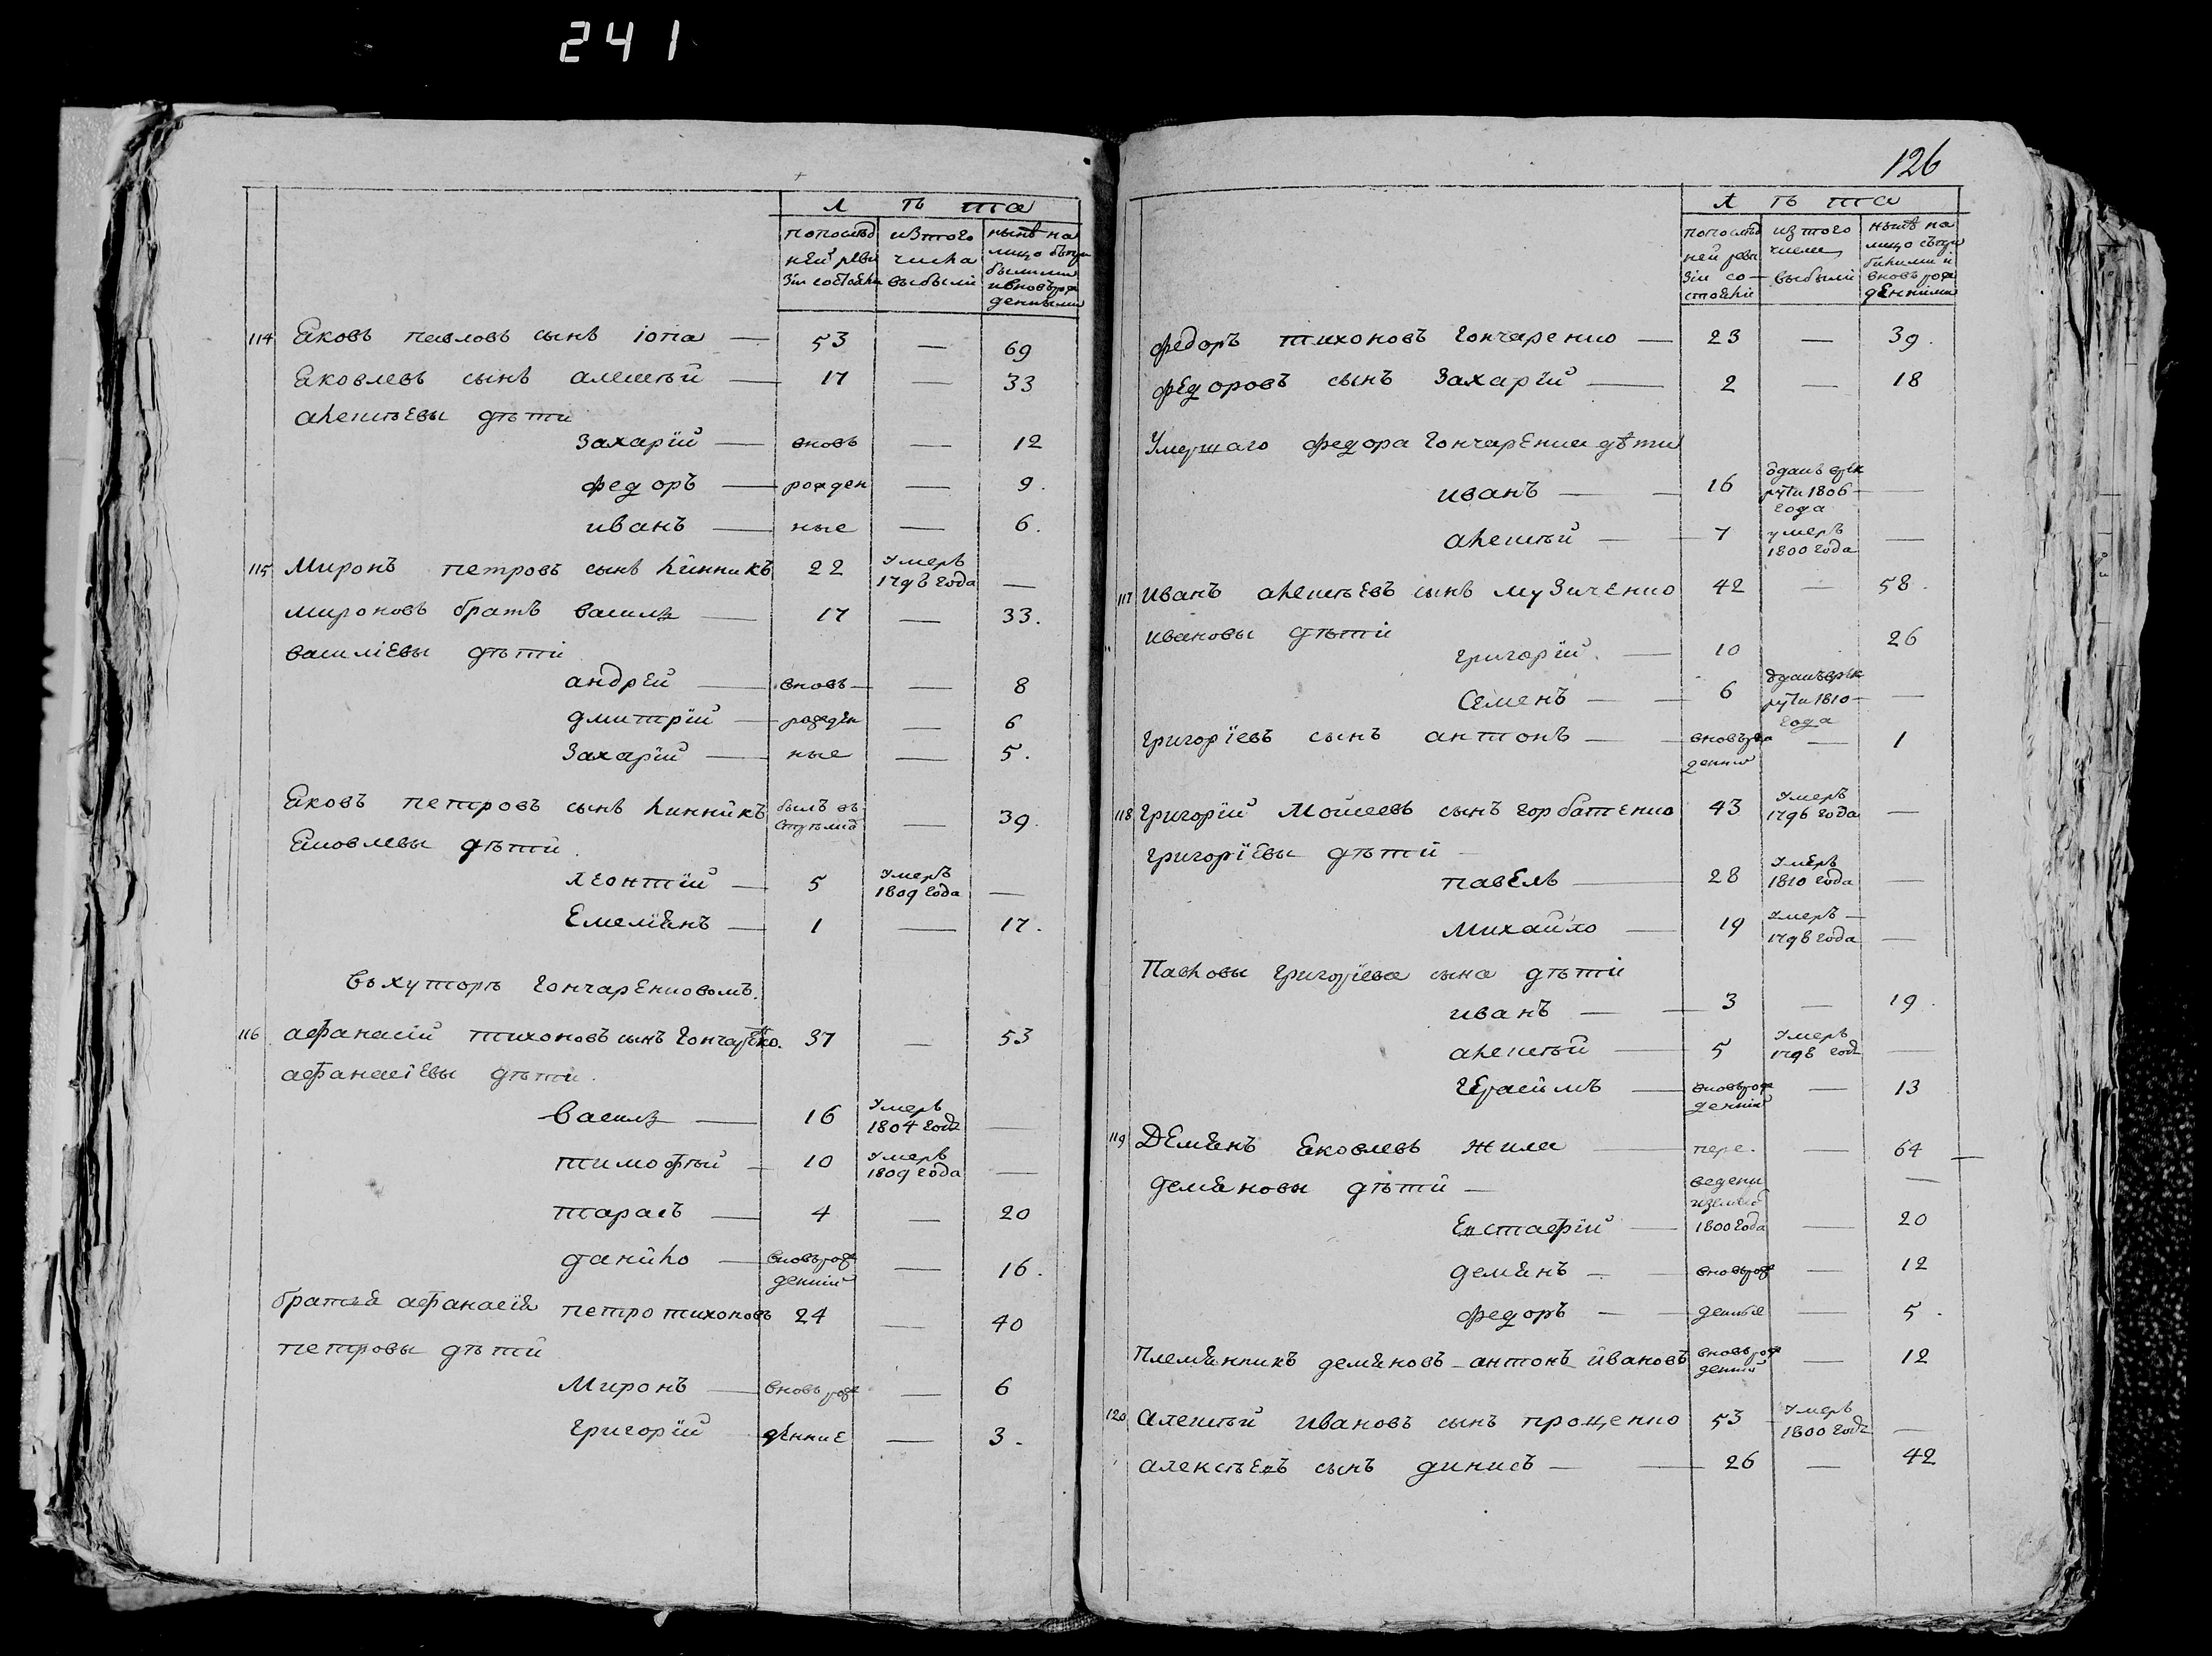 241
Л ѣ та
попослѣд ней реви зіи состояли
изтого числа выбыли
нынѣ на лицо съпри былыми ивновьрож денными
114 Яковъ павловъ сынъ іопа — 53 — 69
Яковлевъ сынъ алексѣй — 17 — 33
алексѣевы дѣти
Захарїй — вновь — 12
федоръ — рожден — 9.
иванъ — ные — 6.
115 Миронъ петровъ сынъ линникъ 22 Умеръ 1796 года —
мироновъ братъ василь — 17 — 33.
василіевы дѣти
андрей — вновь — 8
дмитрїй — рожден — 6
Захарїй — ные — 5.
Яковъ петровъ сынъ линникъ былъ въ — 39.
Яковлевы дѣти
леонтїй — 5 Умеръ 1809 года —
Емелїянъ — 1 — 17.
въхуторѣ гончаренковомъ.
116 афанасій тихоновъ сынъ гончаренко. 37 — 53
афанасіевы дѣти.
василь — 16 Умеръ 1804 года —
тимофѣй — 10 Умеръ 1809 года —
тарасъ — 4 — 20
данило — вновьрож денний — 16.
братья афанасїя петро тихоновъ 24 — 40
петровы дѣти
Миронъ — вновь рож — 6
григорїй денние — 3.
126
Л ѣ та
попослѣд ней реви зіи со— стояли
из того числа выбыли
нынѣ на лицо съпри билими и вновь рож денними
федоръ тихоновъ гончаренко — 23 — 39.
федоровъ сынъ Захарїй — 2 — 18
Умершаго федора гончаренка дѣти
иванъ — 16 отданъ врек руты 1806 года —
алексѣй — 7 умеръ 1800 года —
117 иванъ алексѣевъ сынъ музиченко 42 — 58.
ивановы дѣти
григорїй. — 10 26
Семенъ — 6 отданъ врек руты 1810 года —
григорїевъ сынъ антонъ — вновьрож денний — 1
118 григорїй Мойсеевъ сынъ горбатенко 43 Умеръ 1796 года —
григорїевы дѣти —
павелъ — 28 Умеръ 1810 года —
михайло — 19 Умеръ — 1796 года —
Павловы григорїева сына дѣти
иванъ — 3 — 19.
алексѣй — 5 Умеръ 1796 года —
герасимъ — вновьрож денний — 13
119 Демянъ Яковлевъ жила — пере. — 64
демяновы дѣти — ведени 1800 года —
Евстафїй — — 20
демянъ — вновьрож — 12
федоръ — денные — 5.
Племянникъ демяновъ антонъ ивановъ вновьрож денний — 12
120 алексѣй ивановъ сынъ проценко 53 Умеръ 1800 года —
алексѣевъ сынъ динисъ — 26 — 42